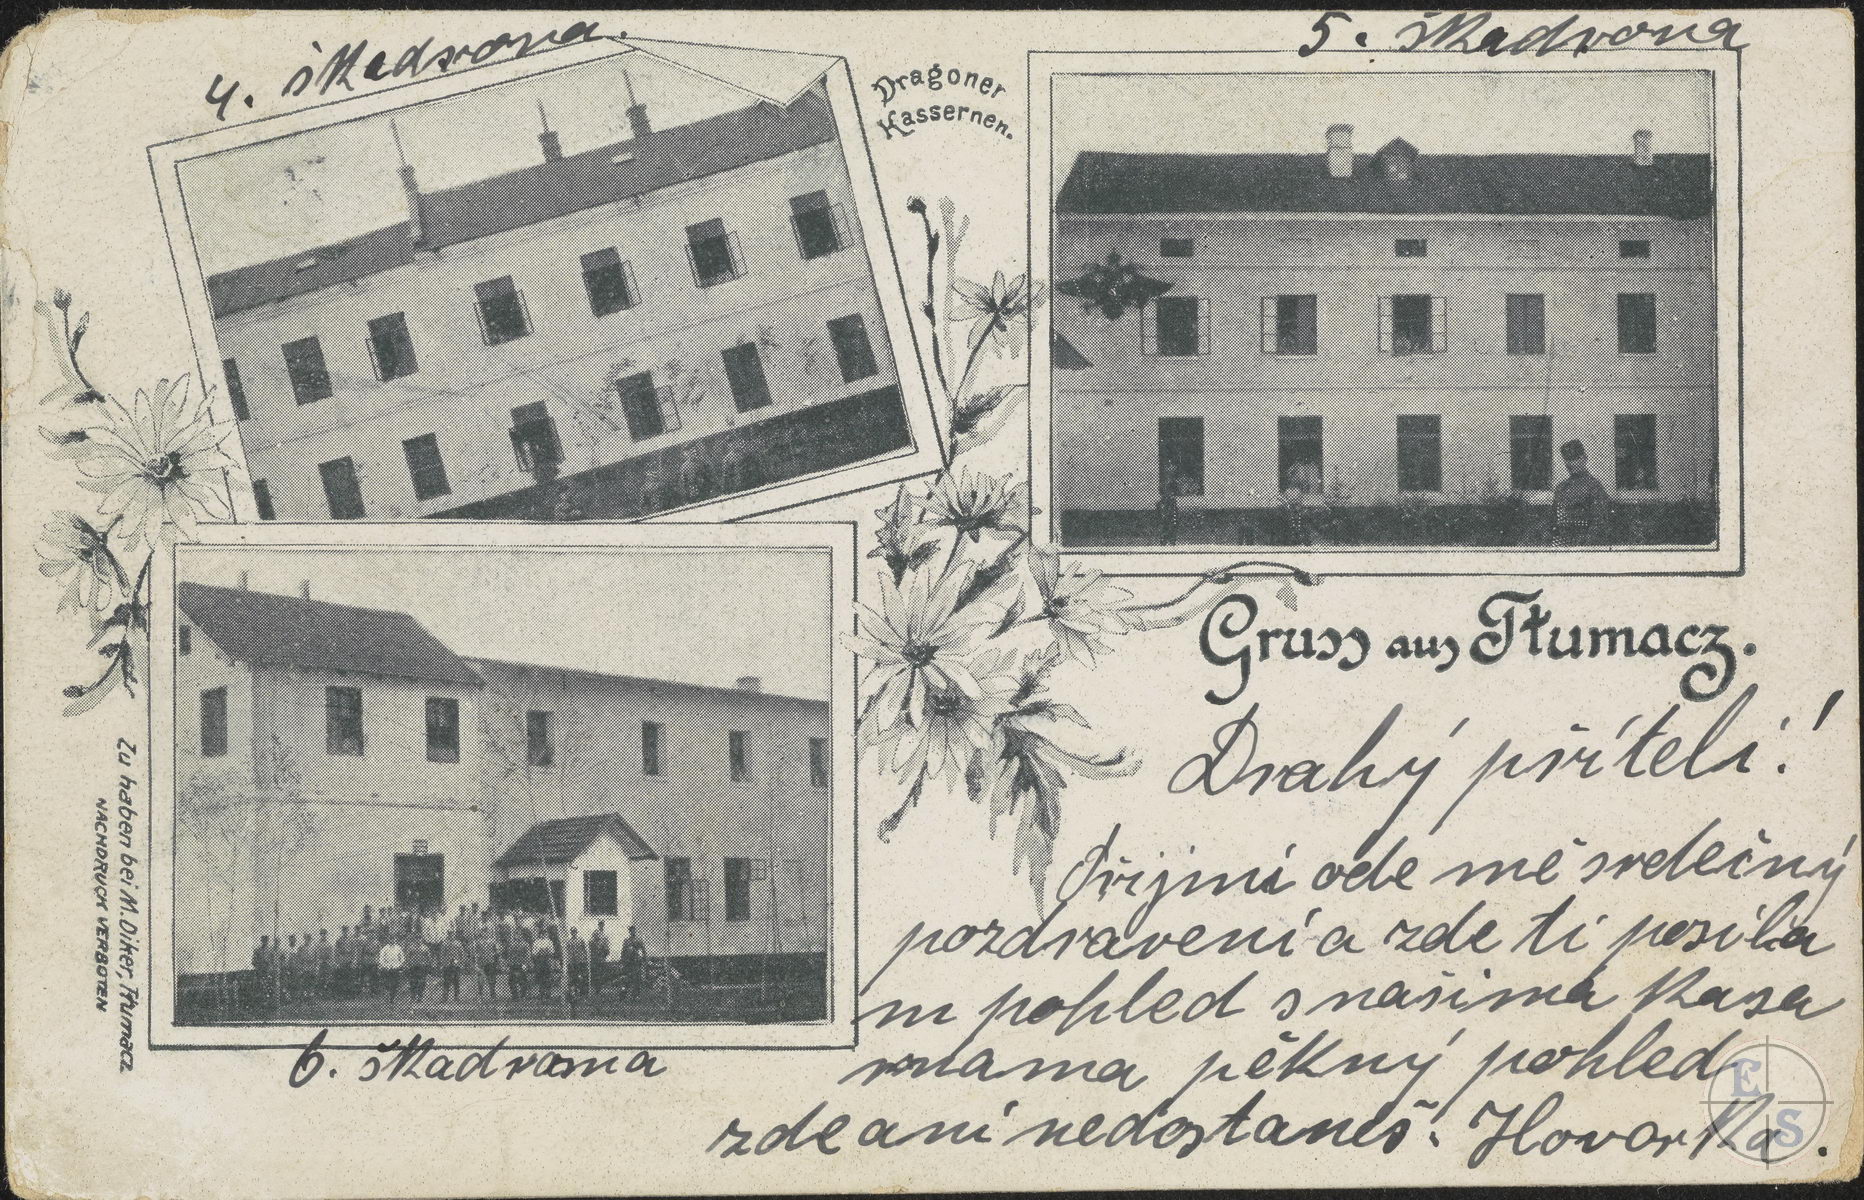 4. škadrona.
5. škadrona
Dragoner
Kassernen.
Gruss aus Tłumacz.
Drahý příteli!
Přijmi ode mě srdečný
pozdravení a zde ti posíla
m pohled s našima kasa
rnama pěkný pohled
zde ani nedostaneš. Hovorka.
6. škadrona
Zu haben bei M. Diker, Tłumacz
NACHDRUCK VERBOTEN
E
S